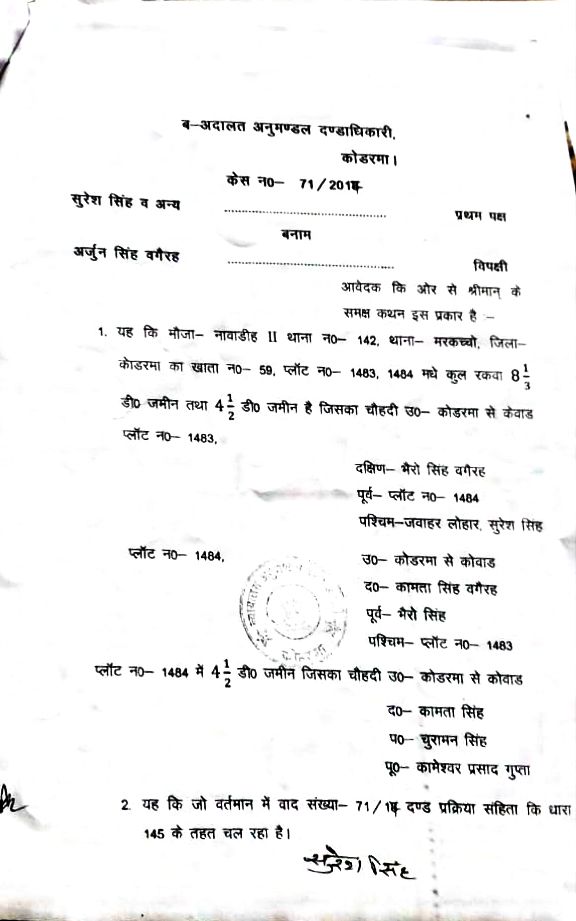 ब–अदालत अनुमण्डल दण्डाधिकारी,
कोडरमा।
केस न0– 71/2014
सुरेश सिंह व अन्य ........................................ प्रथम पक्ष
बनाम
अर्जुन सिंह वगैरह ........................................ विपक्षी
आवेदक कि ओर से श्रीमान् के
समक्ष कथन इस प्रकार है :–
1. यह कि मौजा– नावाडीह II थाना न0– 142, थाना– मरकच्चो, जिला–
कोडरमा का खाता न0– 59, प्लॉट न0– 1483, 1484 मधे कुल रकवा 8 1/3
डी0 जमीन तथा 4 1/2 डी0 जमीन है जिसका चौहदी उ0– कोडरमा से केवाड
प्लॉट न0– 1483,
दक्षिण– भैरो सिंह वगैरह
पूर्व– प्लॉट न0– 1484
पश्चिम–जवाहर लोहार, सुरेश सिंह
प्लॉट न0– 1484, उ0– कोडरमा से कोवाड
द0– कामता सिंह वगैरह
पूर्व– भैरो सिंह
पश्चिम– प्लॉट न0– 1483
प्लॉट न0– 1484 में 4 1/2 डी0 जमीन जिसका चौहदी उ0– कोडरमा से कोवाड
द0– कामता सिंह
प0– चुरामन सिंह
पू0– कामेश्वर प्रसाद गुप्ता
2. यह कि जो वर्तमान में वाद संख्या– 71/14 दण्ड प्रक्रिया संहिता कि धारा
145 के तहत चल रहा है।
सुरेश सिंह